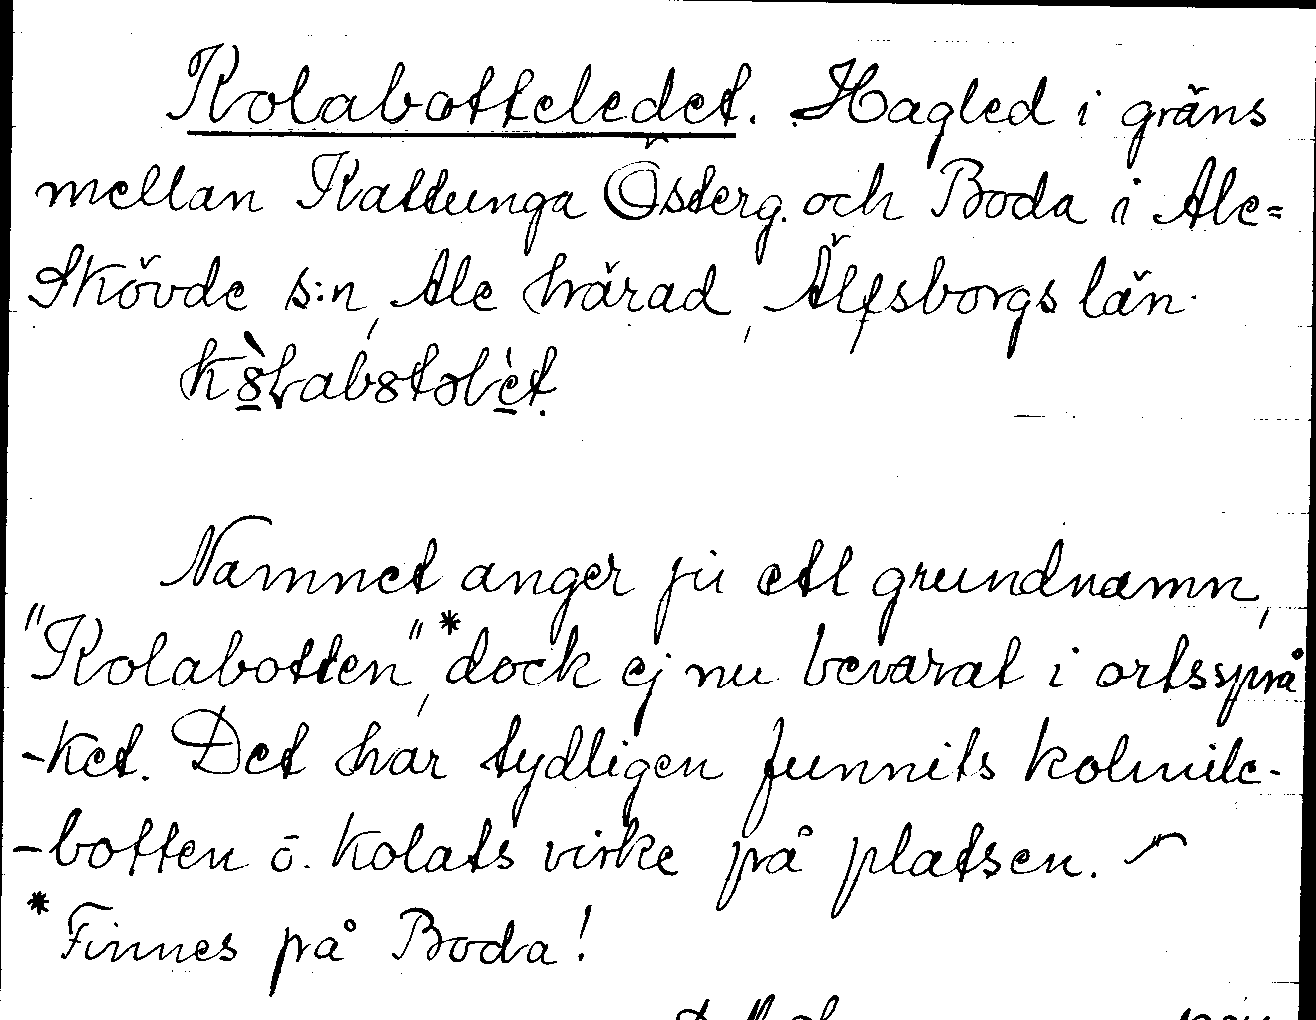 Kolabotteledet. Hagled i gräns
mellan Kattunga Österg. och Boda i Ale=
Skövde s:n, Ale härad, Älfsborgs län.
Namnet anger ju ett grundnamn,
"Kolabotten",* dock ej nu bevarat i ortssprå
-ket. Det har tydligen funnits kolmile-
-botten o. kolats virke på platsen.
* Finnes på Boda!